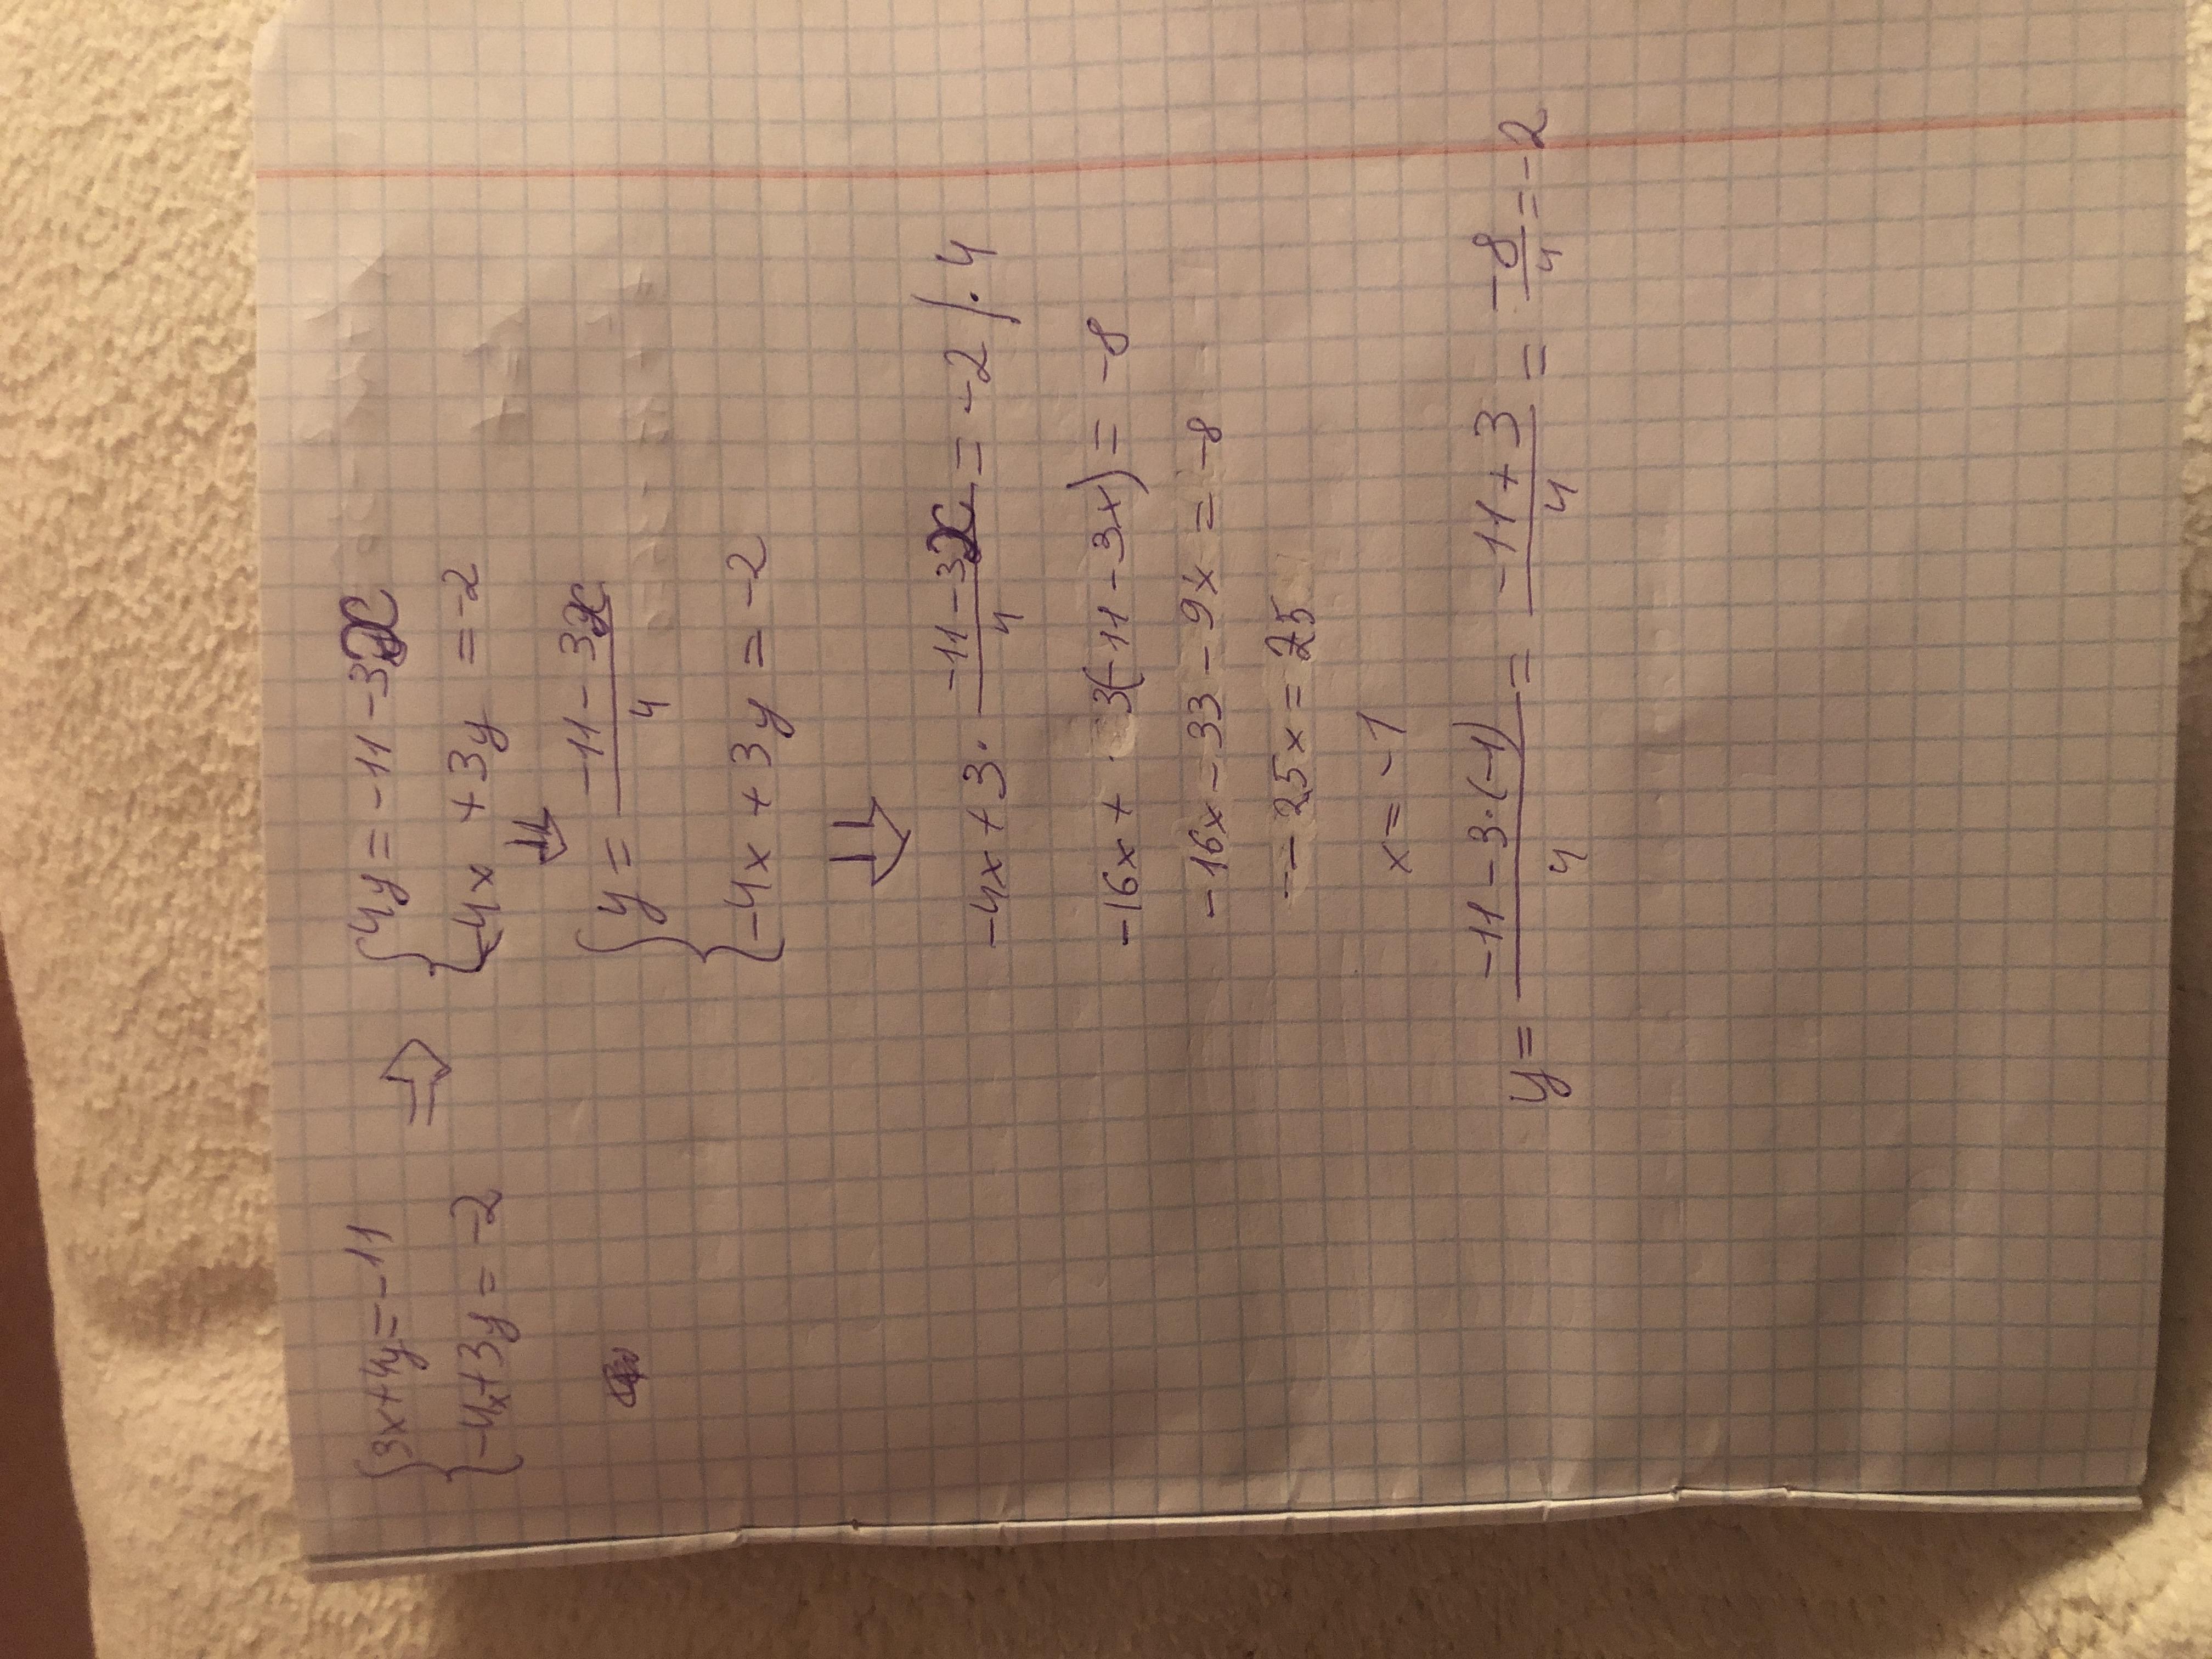 {3x+4y=-11 ⇒ {4y=-11-3x
{-4x+3y=-2 {-4x+3y=-2
⇓
{y=\frac{-11-3x}{4}
{-4x+3y=-2
⇓
-4x+3·\frac{-11-3x}{4}=-2 /·4
-16x+·3(-11-3x)=-8
-16x-33-9x=-8
-25x=25
x=-1
y=\frac{-11-3·(-1)}{4}=\frac{-11+3}{4}=\frac{-8}{4}=-2